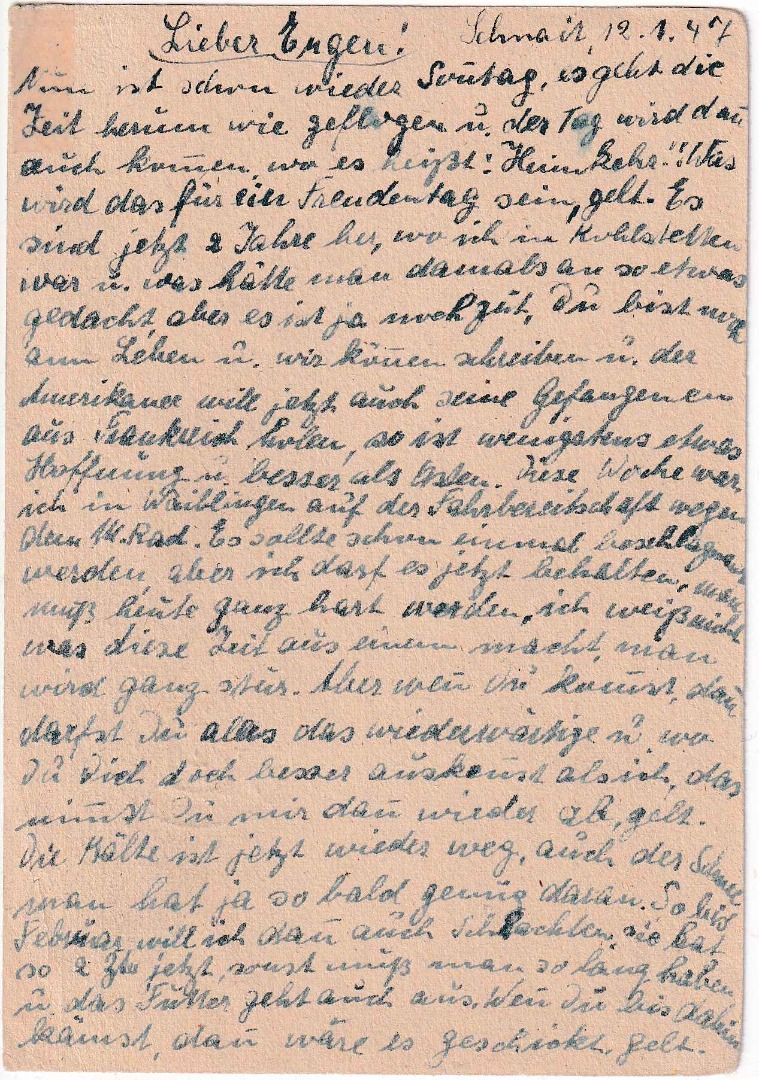 Lieber Eugen! Schnait, 12.1.47
Nun ist schon wieder Sontag, es geht die
Zeit herum wie geflogen u. der Tag wird dan
auch komen, wo es heißt: Heimkehr!! Was
wird das für ein Freudentag sein, gelt. Es
sind jetzt 2 Jahre her, wo ich in Kohlstetten
war u. was hätte man damals an so etwas
gedacht, aber es ist ja noch gut, Du bist noch
am Leben u. wir könen schreiben u. der
Amerikaner will jetzt auch seine Gefangenen
aus Frankreich holen, so ist wenigstens etwas
Hoffnung u. besser als Osten. Diese Woche war
ich in Waiblingen auf der Fahrbereitschaft wegen
dem M.Rad. Es sollte schon einmal beschlagnamt
werden, aber ich darf es jetzt behalten, man
muß heute ganz hart werden, ich weiß nicht
was diese Zeit aus einem macht, man
wird ganz stur. Aber wen Du komst, dan
darfst Du alles das wiederwärtige u. wo
Du Dich doch besser auskenst als ich, das
nimst Du mir dan wieder ab, gelt.
Die Kälte ist jetzt wieder weg, auch der Schnee
man hat ja so bald genug daran. So bis
Februar will ich dan auch Schlachten, sie hat
so 2 Ztr jetzt, sonst muß man so lang haben
u. das Futter geht auch aus. Wen Du bis dahin
kämst, dan wäre es geschickt, gelt.